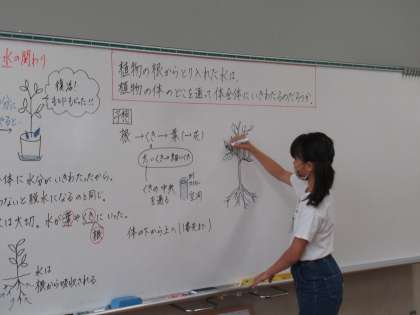 水の関わり
植物の根からとり入れた水は、
植物の体のどこを通って体全体にいきわたるのだろうか。
復活！
予想
根→くき→葉(→花)
くきの中央
を通る
体に水分がいきわたったから。
ないと脱水になるのと同じ。
は大切。水が葉やくきにいった。
根
体の下から上へ
水は
根から吸収される